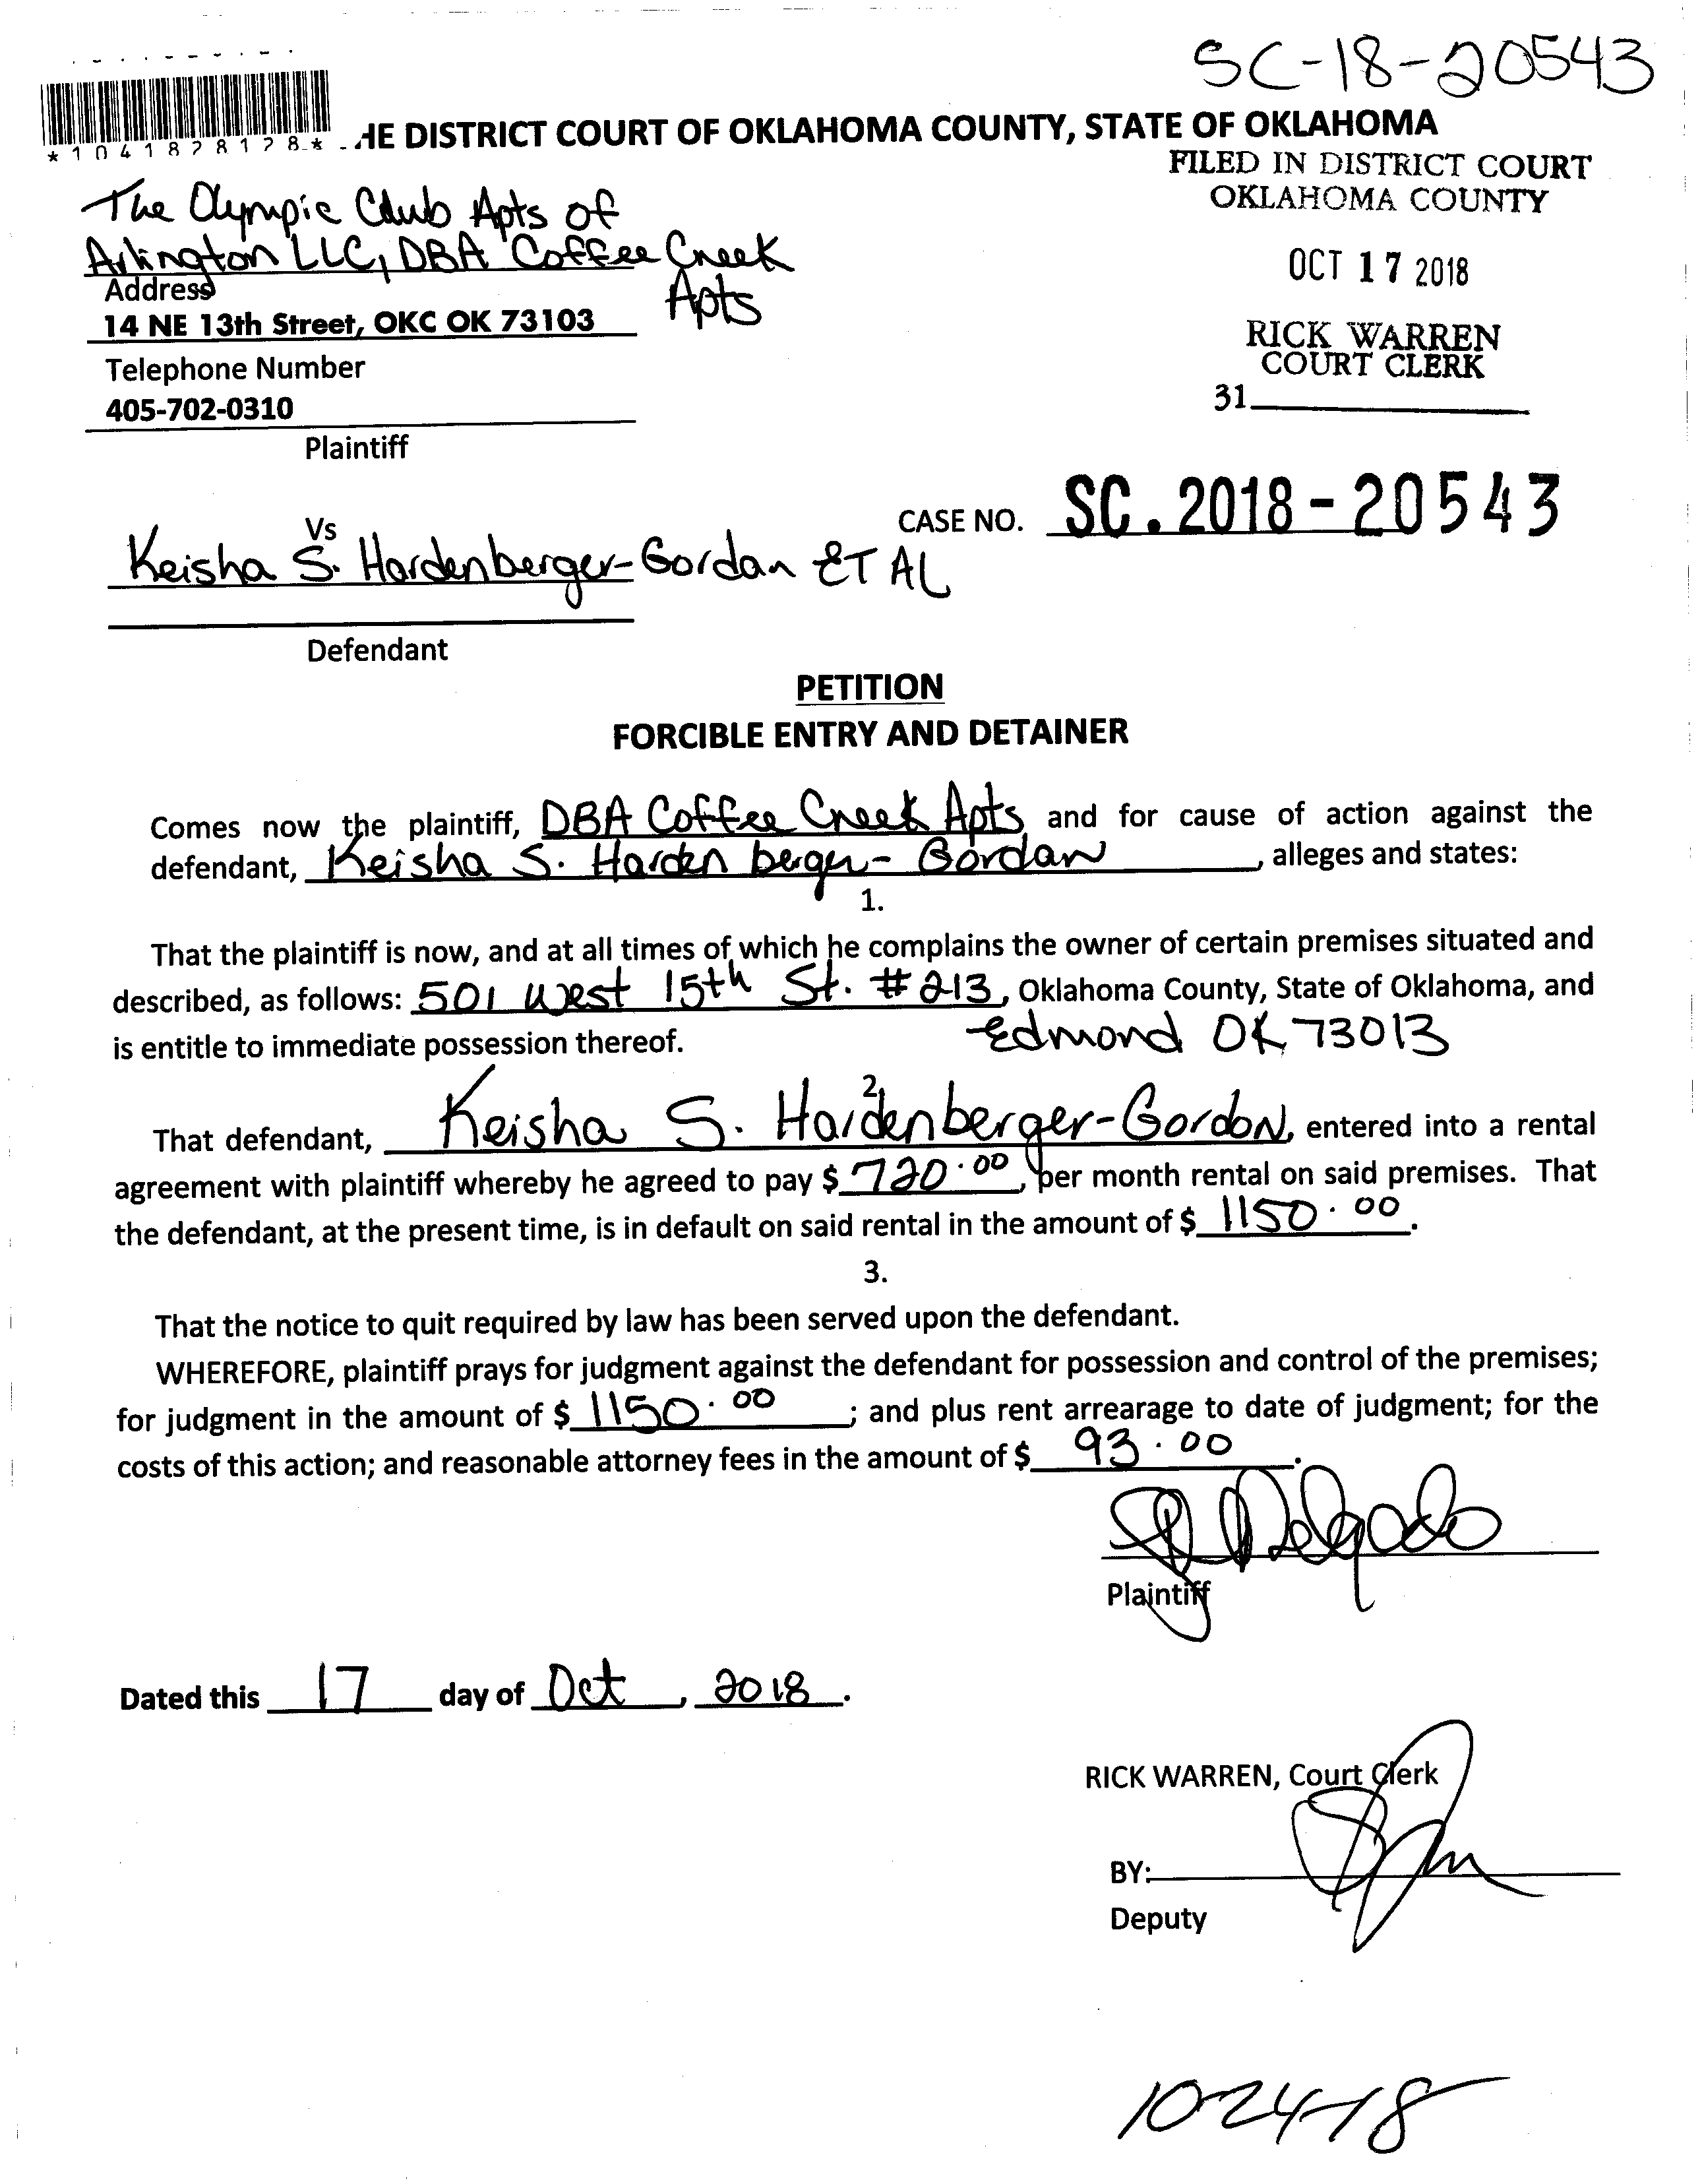 SC-18-20543
*1041828128* HE DISTRICT COURT OF OKLAHOMA COUNTY, STATE OF OKLAHOMA
FILED IN DISTRICT COURT
OKLAHOMA COUNTY
The Olympic Club Apts of
Arlington LLC, DBA Coffee Creek
Apts
OCT 17 2018
Address
14 NE 13th Street, OKC OK 73103
RICK WARREN
COURT CLERK
Telephone Number
31
405-702-0310
Plaintiff
Vs
CASE NO. SC.2018-20543
Keisha S. Hardenberger-Gordan ET AL
Defendant
PETITION
FORCIBLE ENTRY AND DETAINER
Comes now the plaintiff, DBA Coffee Creek Apts and for cause of action against the
defendant, Keisha S. Harden berger-Gordan, alleges and states:
1.
That the plaintiff is now, and at all times of which he complains the owner of certain premises situated and
described, as follows: 501 West 15th St. #213, Oklahoma County, State of Oklahoma, and
is entitle to immediate possession thereof. Edmond OK 73013
2.
That defendant, Keisha S. Hardenberger-Gordon, entered into a rental
agreement with plaintiff whereby he agreed to pay $ 720.00, per month rental on said premises. That
the defendant, at the present time, is in default on said rental in the amount of $ 1150.00.
3.
That the notice to quit required by law has been served upon the defendant.
WHEREFORE, plaintiff prays for judgment against the defendant for possession and control of the premises;
for judgment in the amount of $ 1150.00; and plus rent arrearage to date of judgment; for the
costs of this action; and reasonable attorney fees in the amount of $ 93.00.
Delgado
Plaintiff
Dated this 17 day of Oct, 2018.
RICK WARREN, Court Clerk
BY:
Deputy
10-24-18